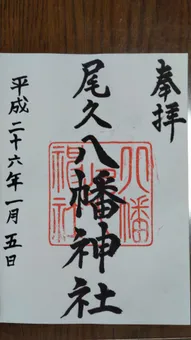 奉拝
尾久八幡神社
平成二十六年一月五日